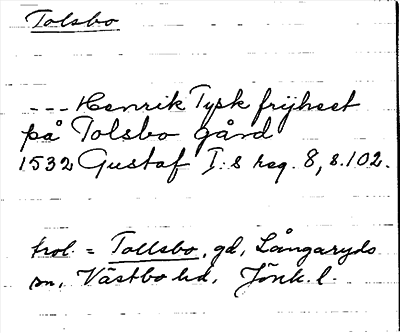 Tolsbo
--- Henrik Tysk frijheet
på Tolsbo gård
1532 Gustaf I:s reg. 8, s. 102.
trol. = Tollsbo, gd, Långaryds
sn, Västbo hd, Jönk. l.